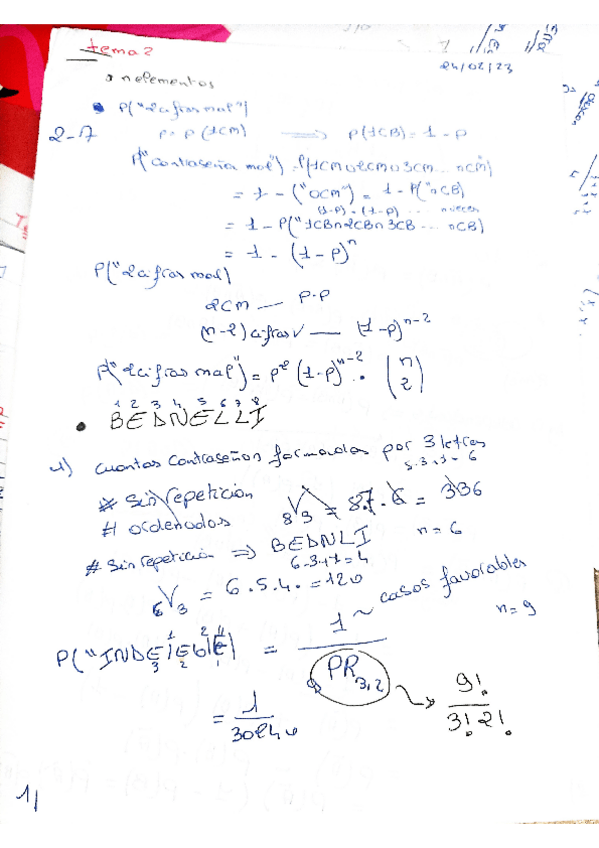 tema 2
24/02/23
n elementos
• P("2 cifras mal")
2-17 p = p(1CM) ⟹ p(1CB) = 1 - p
P("contraseña mal") = P(1CM ∪ 2CM ∪ 3CM ... nCM)
= 1 - ("0CM") = 1 - P("nCB)
(1-p) · (1-p) ... n veces
= 1 - P("1CB ∩ 2CB ∩ 3CB ... nCB)
= 1 - (1-p)^n
P("2 cifras mal)
2CM — p·p
(n-2) cifras √ — (1-p)^{n-2}
P("2 cifras mal") = p² (1-p)^{n-2} · (n 2)
1 2 3 4 5 6 7 8
• BEDNELLI
4) cuantas contraseñas formadas por 3 letras
# Sin repetición 8V3 = 8.7.6 = 336
# ordenados
# Sin repetición ⟹ BEDNLI n = 6
6-3+1 = 4
6V3 = 6.5.4. = 120
1 ~ casos favorables
n = 9
P("INDELEBLE) = 1 / PR3,2 → 9! / 3! 2!
= 1 / 30240
1|